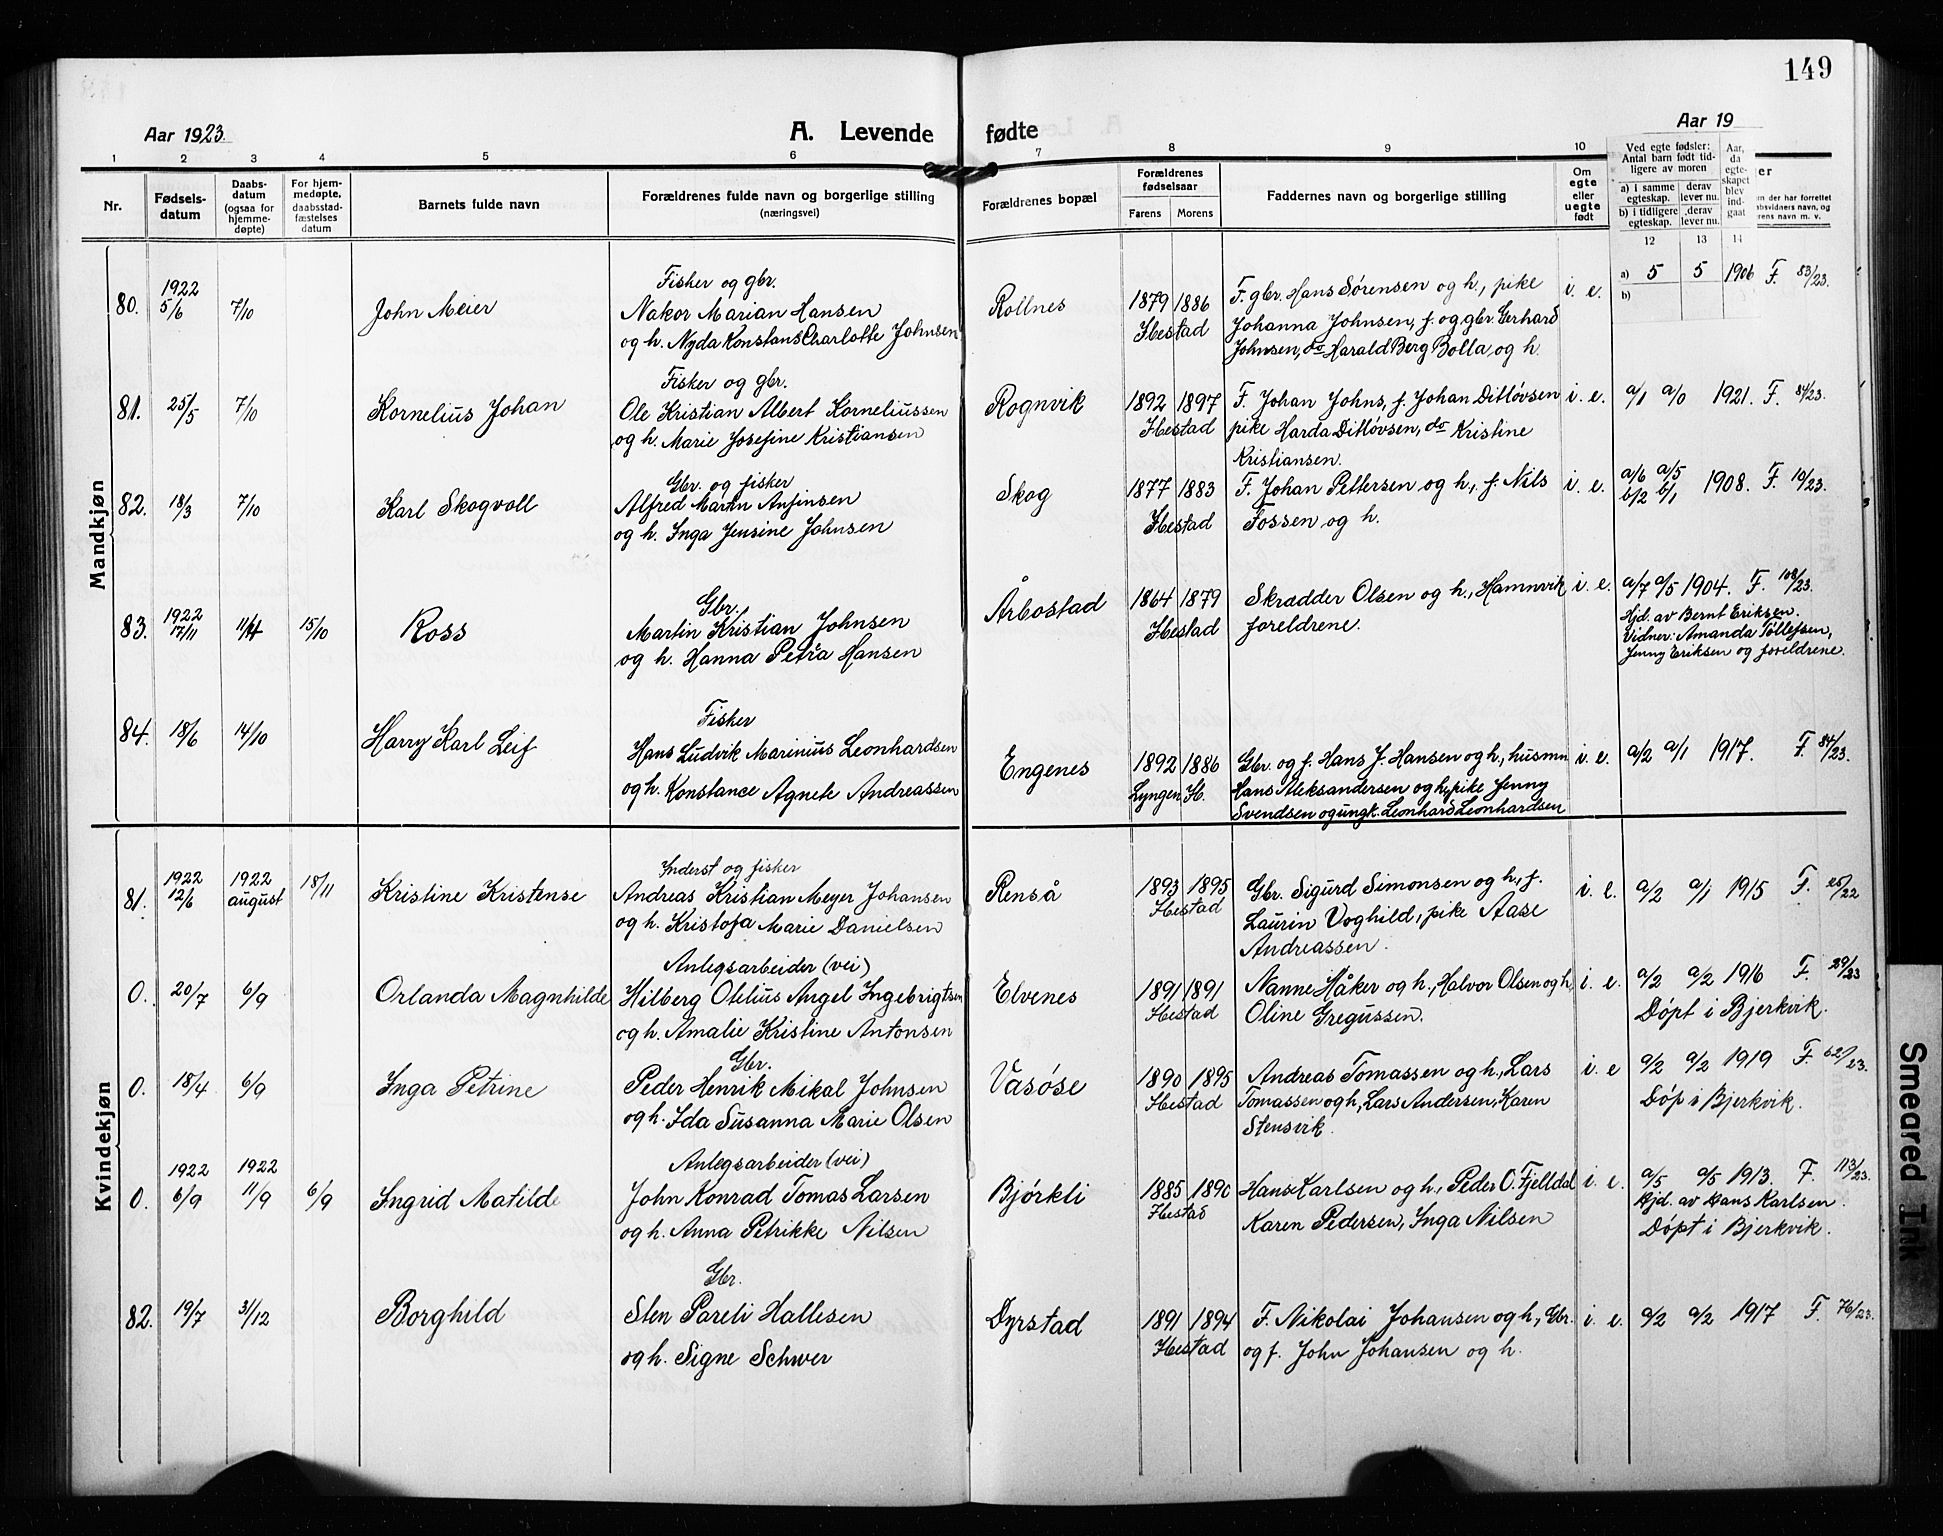 149
Aar 1923.
A. Levende fødte
Aar 19
1 2 3 4 5 6 7 8 9 10
Nr.
Fødsels-
datum
Daabs-
datum
(ogsaa for
hjemme-
døpte)
For hjem-
medøpte,
daabsstad-
fæstelses
datum
Barnets fulde navn
Forældrenes fulde navn og borgerlige stilling
(næringsvei)
Forældrenes bopæl
Forældrenes
fødselsaar
Farens Morens
Faddernes navn og borgerlige stilling
Om
egte
eller
uegte
født
Ved egte fødsler:
Antal barn født tid-
ligere av moren
a) i samme
egteskap.
derav
lever nu.
b) i tidligere
egteskap.
derav
lever nu.
Aar,
da
egte-
skapet
blev
ind-
gaat
12 13 14
er
n der har forrettet
absvidners navn, og
rens navn m. v.
Mandkjøn
80. 1922 5/6 7/10 John Meier
Fisker og gbr.
Nakor Marian Hansen
og h. Nyda Konstans Charlotte Johnsen
Rollnes 1879 1886 Ibestad
F. gbr. Hans Sørensen og h., pike
Johanna Johnsen, f. og gbr. Gerhard
Johnsen, do Harald Berg Bolla, og h.
i. e. a) 5 5 1906 F. 83/23.
b)
81. 25/5 7/10 Kornelius Johan
Fisker og gbr.
Ole Kristian Albert Korneliussen
og h. Marie Josefine Kristiansen
Rognvik 1892 1897 Ibestad
F. Johan Johns, f. Johan Ditløvsen
pike Harda Ditløvsen, do Kristine
Kristiansen.
i. e. a/1 a/0 1921. F. 84/23.
82. 18/3 7/10 Karl Skogvoll
Gbr. og fisker
Alfred Martin Anfinsen
og h. Inga Jensine Johnsen
Skog 1877 1883 Ibestad
F. Johan Pettersen og h., f. Nils
Fossen og h.
i. e. a/6 a/5 1908. F. 10/23.
b/2 b/1
83. 1922 17/11 11/4 15/10 Ross
Gbr.
Martin Kristian Johnsen
og h. Hanna Petra Hansen
Årbostad 1864 1879 Ibestad
Skrædder Olsen og h., Hamnvik
foreldrene.
i. e. a/7 a/5 1904. F. 108/23.
Hjd. av Bernt Eriksen.
Vidner: Amanda Tollefsen,
Jenny Eriksen og foreldrene.
84. 18/6 14/10 Harry Karl Leif
Fisker
Hans Ludvik Marinius Leonhardsen
og h. Konstance Agnete Andreassen
Engenes 1892 1886 Lyngen Ib.
Gbr. og f. Hans J. Hansen og h., husmn
Hans Aleksandersen og h, pike Jenny
Svendsen og ungk. Leonhard Leonhardsen
i. e. a/2 a/1 1917. F. 84/23.
Kvindekjøn
81. 1922 12/6 1922 august 18/11 Kristine Kristense
Inderst og fisker
Andreas Kristian Meyer Johansen
og h. Kristofa Marie Danielsen
Renså 1893 1895 Ibestad
Gbr. Sigurd Simonsen og h., f.
Laurin Voghild, pike Aase
Andreassen.
i. e. a/2 a/1 1915 F. 25/22
0. 20/7 6/9 Orlanda Magnhilde
Anlegsarbeider (vei)
Hilberg Otelius Angel Ingebrigtsen
og h. Amalie Kristine Antonsen
Elvenes 1891 1891 Ibestad
Nanne Håker og h., Halvor Olsen og h,
Oline Gregussen.
i. e. a/2 a/2 1916 F. 29/23
Døpt i Bjerkvik.
0. 18/4 6/9 Inga Petrine
Gbr.
Peder Henrik Mikal Johnsen
og h. Ida Susanna Marie Olsen
Vasøse 1890 1895 Ibestad
Andreas Tomassen og h., Lars
Tomassen og h, Lars Andersen, Karen
Stensvik.
i. e a/2 a/2 1919 F. 62/23.
Døp i Bjerkvik.
0. 1922 6/9 1922 11/9 6/9 Ingrid Matilde
Anlegsarbeider (vei)
John Konrad Tomas Larsen
og h. Anna Petrikke Nilsen
Bjørkli 1885 1890 Ibestad
Hans Karlsen og h., Peder O. Fjelldal
Karen Pedersen, Inga Nilsen
i. e. a/5 a/5 1913. F. 113/23.
Hjd. av Hans Karlsen.
Døpt i Bjerkvik.
82. 19/7 31/12 Borghild
Gbr.
Sten Pareli Hallesen
og h. Signe Schwer
Dyrstad 1891 1894 Ibestad
F. Nikolai Johansen og h., Gbr.
og f. John Johansen og h.
i. e. a/2 a/2 1917 F. 76/23.
Smeared Ink